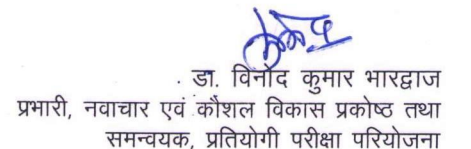 डा. विनोद कुमार भारद्वाज
प्रभारी, नवाचार एवं कौशल विकास प्रकोष्ठ तथा
समन्वयक, प्रतियोगी परीक्षा परियोजना